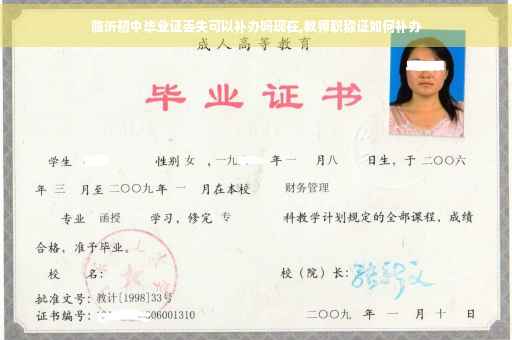 临沂初中毕业证丢失可以补办吗现在,教师职称证如何补办
成人高等教育
毕业证书
学生 性别 女 ,一九 年一 月八 日生,于二〇〇六
年 三 月至二〇〇九年 一 月在本校 财务管理
专业 函授 学习,修完 专 科教学计划规定的全部课程,成绩
合格,准予毕业。
校 名: 校(院)长:
批准文号:教计[1998]33号
证书编号: 06001310 二〇〇九 年 一 月 十 日